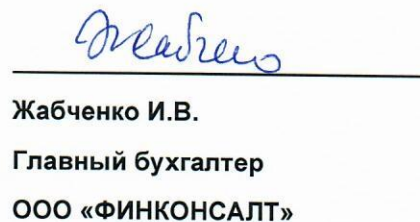 Жабченко
Жабченко И.В.
Главный бухгалтер
ООО «ФИНКОНСАЛТ»